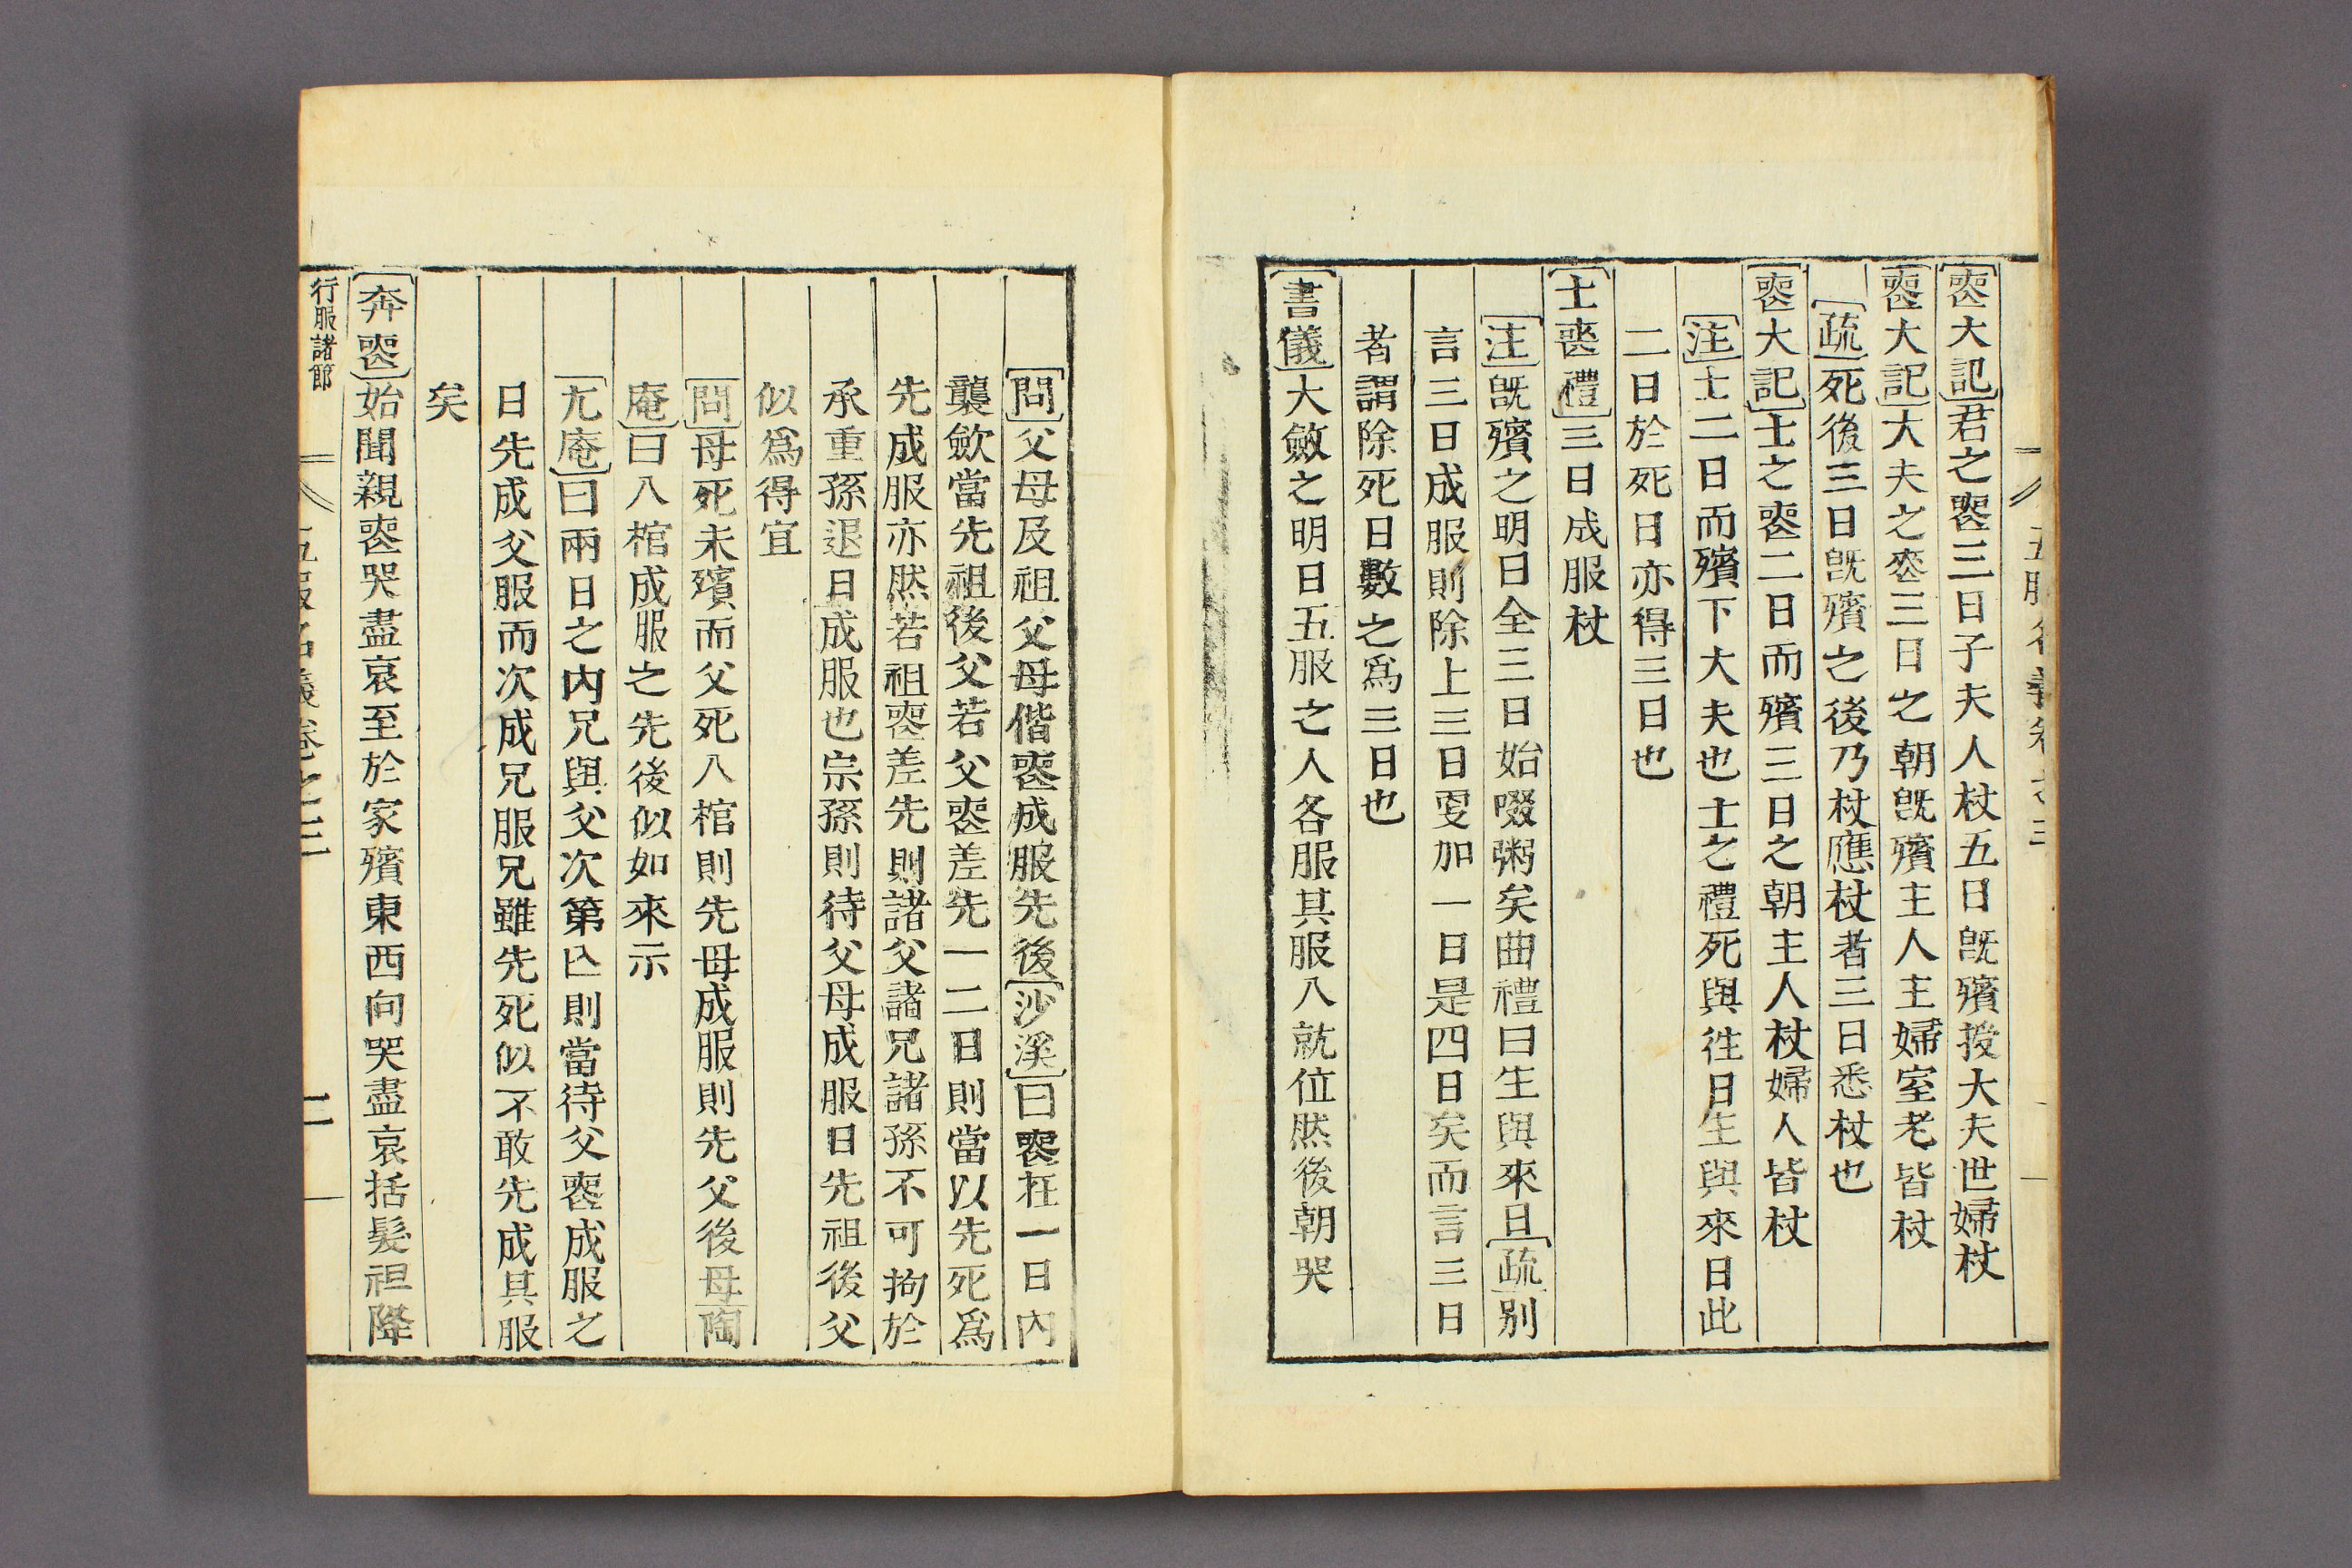 喪大記君之喪三日子夫人杖五日旣殯授大夫世婦杖
喪大記大夫之喪三日之朝旣殯主人主婦室老皆杖
疏死後三日旣殯之後乃杖應杖者三日悉杖也
喪大記士之喪二日而殯三日之朝主人杖婦人皆杖
注士二日而殯下大夫也士之禮死與徃日生與來日此
二日於死日亦得三日也
士喪禮三日成服杖
注旣殯之明日全三日始啜粥矣曲禮曰生與來日疏別
言三日成服則除上三日更加一日是四日矣而言三日
者謂除死日數之爲三日也
書儀大斂之明日五服之人各服其服入就位然後朝哭
問父母及祖父母偕喪成服先後沙溪曰喪在一日內
襲斂當先祖後父若父喪差先一二日則當以先死爲
先成服亦然若祖喪差先則諸父諸兄諸孫不可拘於
承重孫退日成服也宗孫則待父母成服日先祖後父
似爲得宜
問母死未殯而父死入棺則先母成服則先父後母陶
庵曰入棺成服之先後似如來示
尤庵曰兩日之內兄與父次第亾則當待父喪成服之
日先成父服而次成兄服兄雖先死似不敢先成其服
矣
奔喪始聞親喪哭盡哀至於家殯東西向哭盡哀括髮袒降
行服諸節
五服名義卷之三
二